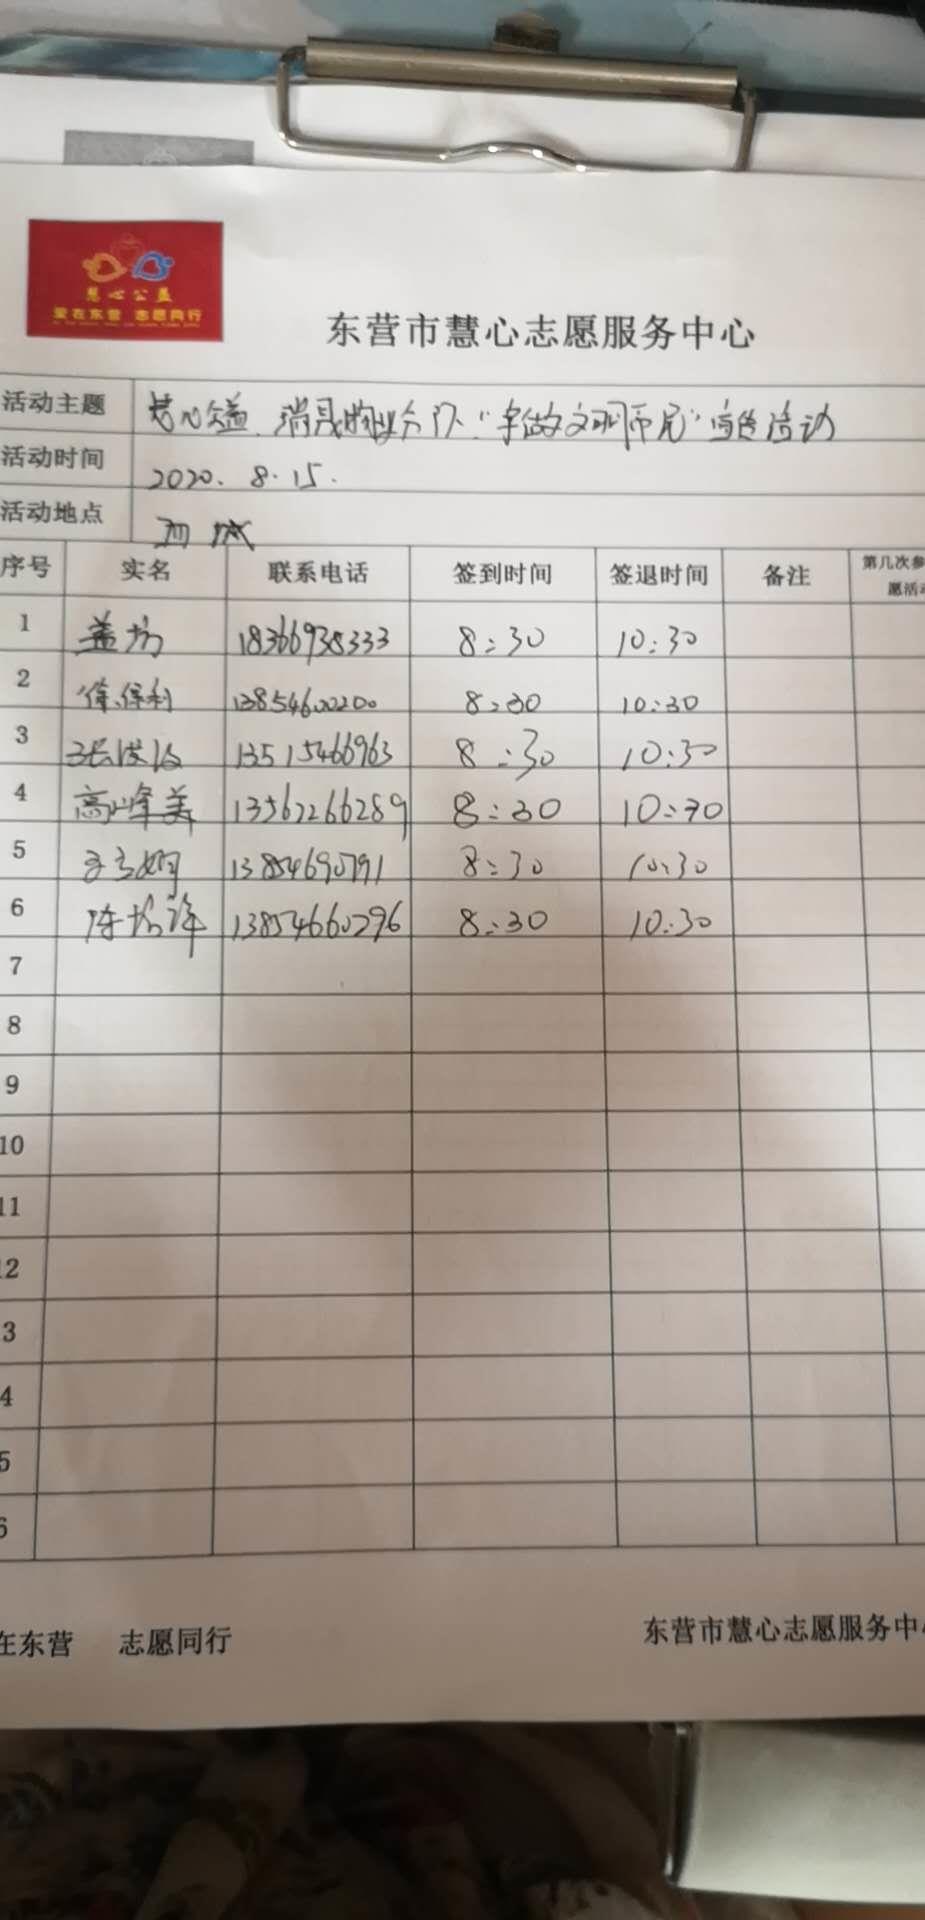 慧心公益
爱在东营 志愿同行
东营市慧心志愿服务中心
活动主题 慧心公益 "争做文明市民"宣传活动
活动时间 2020.8.15.
活动地点 西城
序号 实名 联系电话 签到时间 签退时间 备注 第几次参
愿活动
1 18366938333 8:30 10:30
2 徐保利 13854600200 8:30 10:30
3 13515466963 8:30 10:30
4 高峰美 13562266289 8:30 10:30
5 13854690791 8:30 10:30
6 13854660296 8:30 10:30
7
8
9
10
11
12
3
4
5
6
在东营 志愿同行 东营市慧心志愿服务中